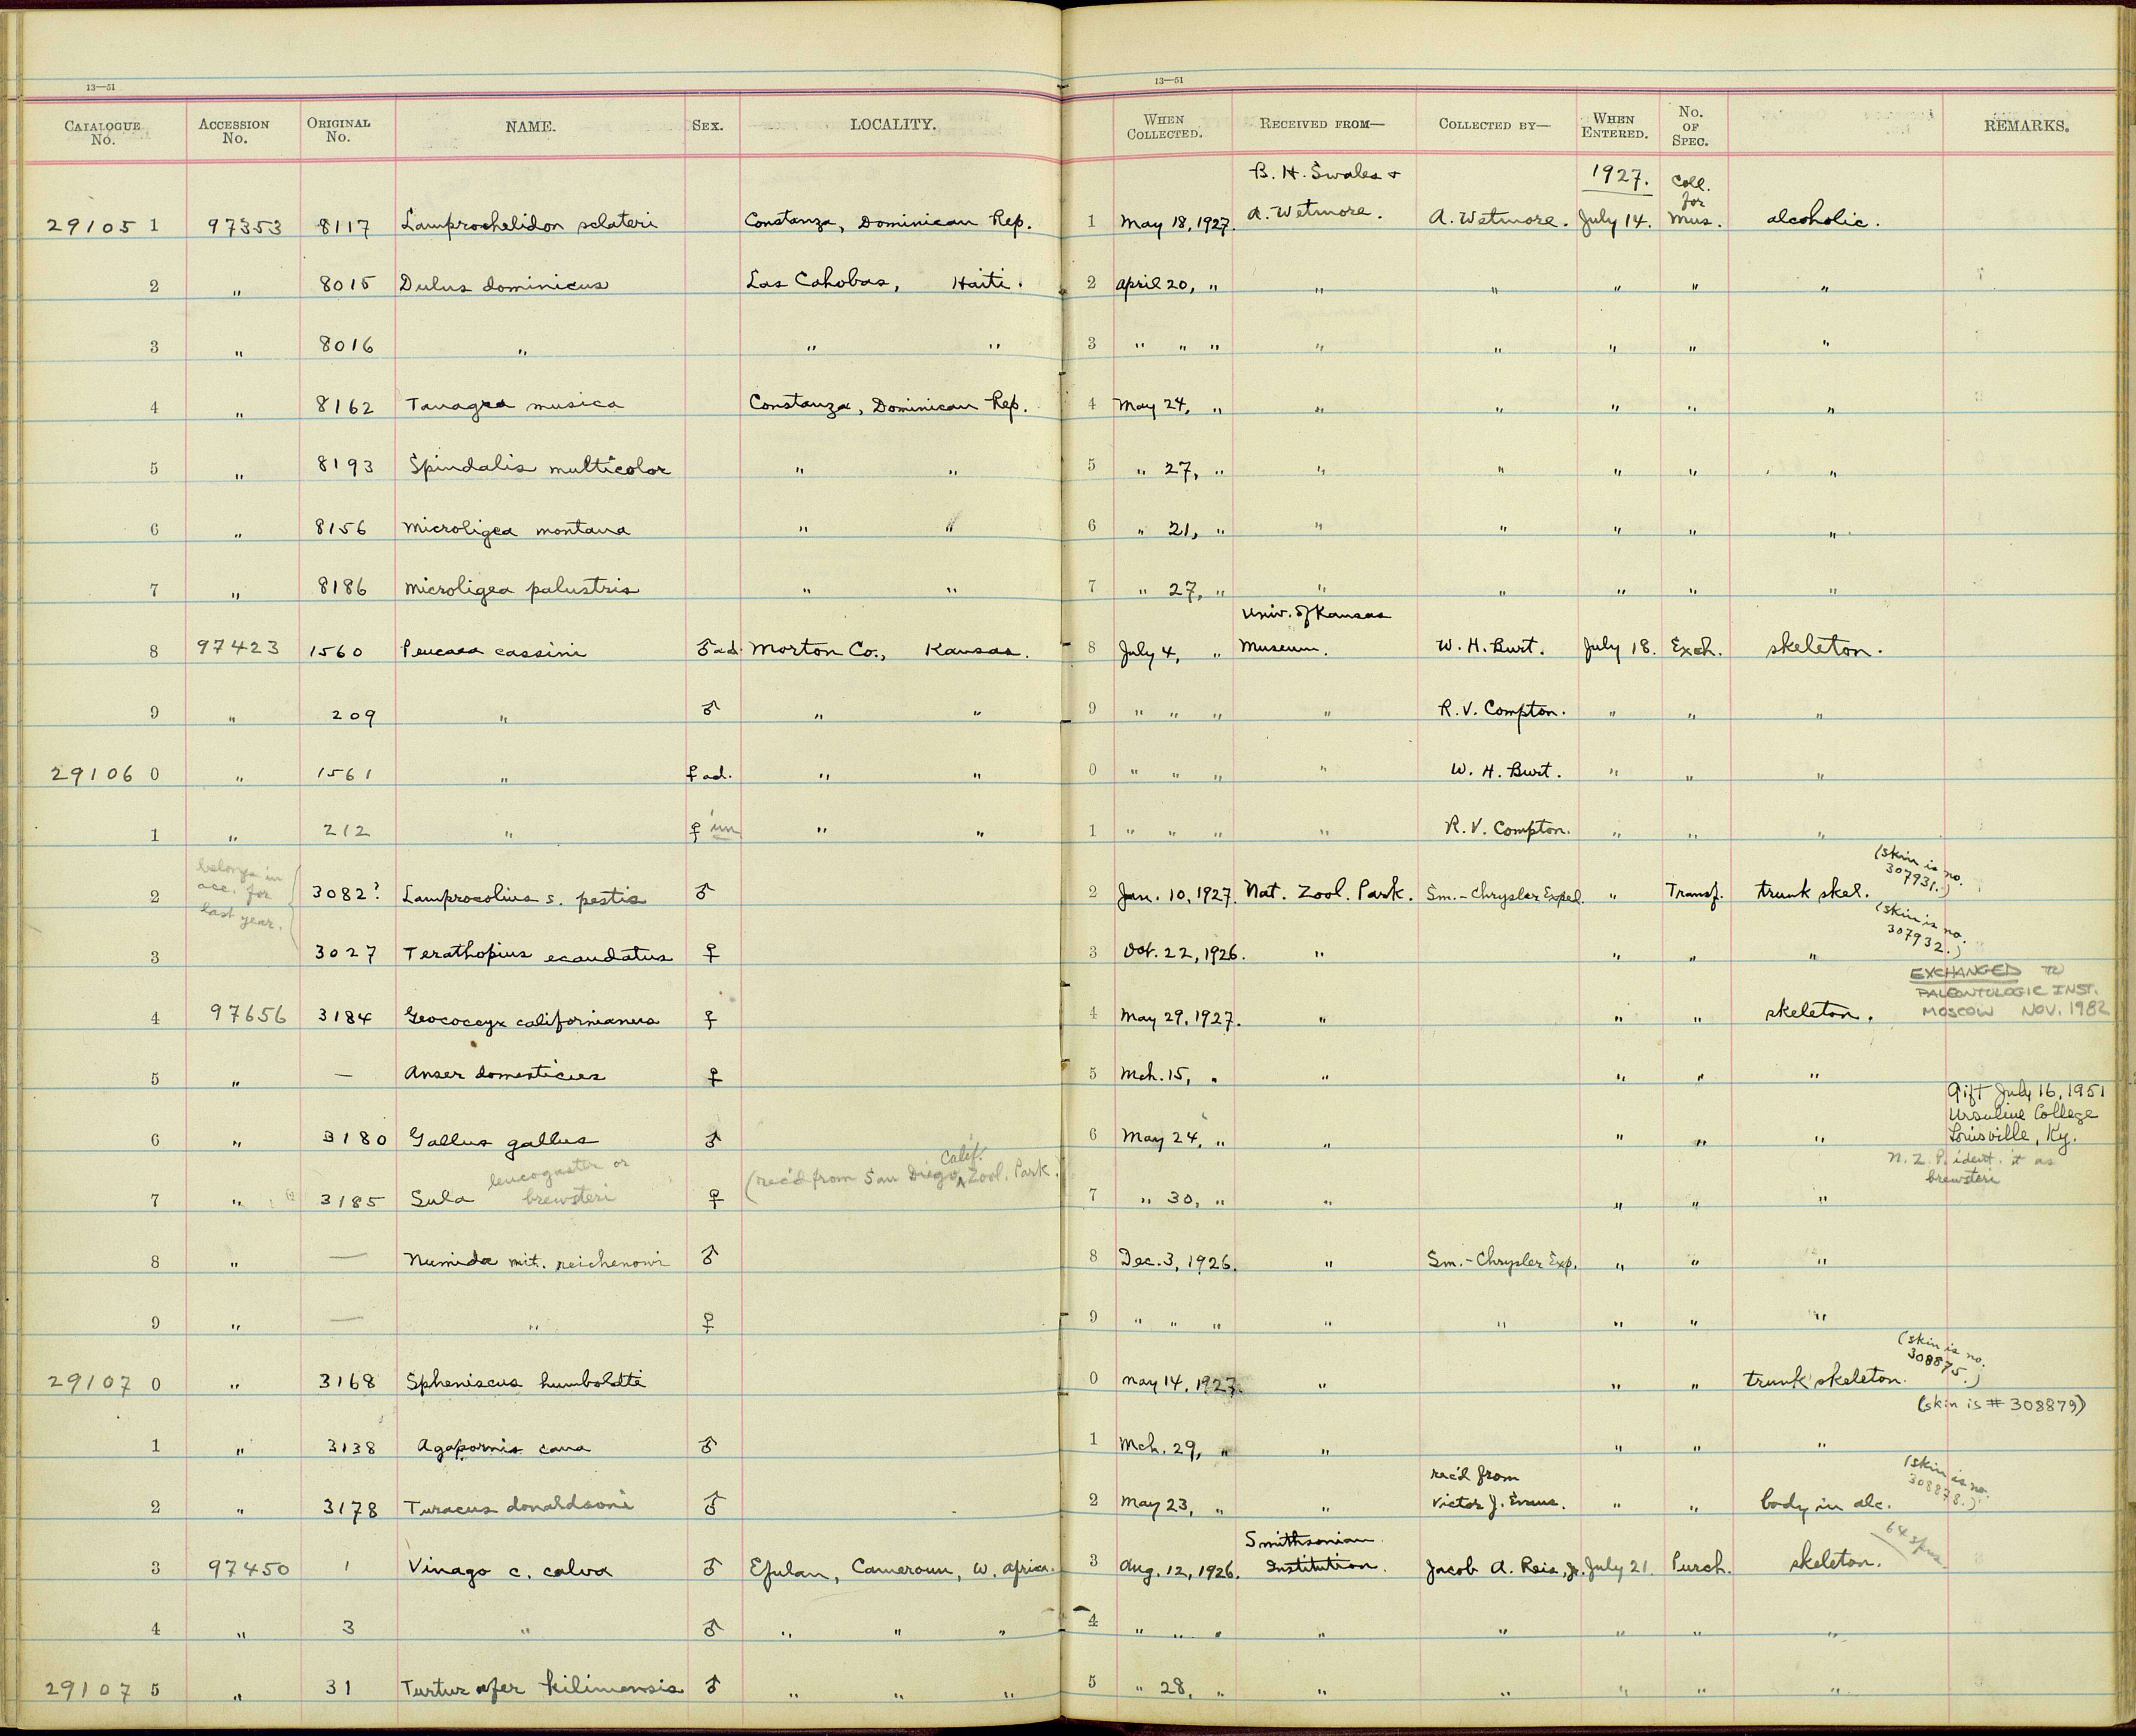 13—51
13—51
CATALOGUE No. ACCESSION No. ORIGINAL No. NAME. SEX. LOCALITY. WHEN COLLECTED. RECEIVED FROM— COLLECTED BY— WHEN ENTERED. No. OF SPEC. REMARKS.
B. H. Swales & 1927. Coll. for
29105 1 97353 8117 Lamprochelidon sclateri Constanza, Dominican Rep. 1 May 18, 1927. A. Wetmore. A. Wetmore. July 14. Mus. alcoholic.
2 " 8015 Dulus dominicus Las Cahobas, Haiti. 2 April 20, " " " " " "
3 " 8016 " " " 3 " " " " " " " "
4 " 8162 Tanagra musica Constanza, Dominican Rep. 4 May 24, " " " " " "
5 " 8193 Spindalis multicolor " " 5 " 27, " " " " " "
6 " 8156 Microligea montana " " 6 " 21, " " " " " "
7 " 8186 Microligea palustris " " 7 " 27, " " " " " "
Univ. of Kansas
8 97423 1560 Peucaea cassini ♂ ad. Morton Co., Kansas. 8 July 4, " Museum. W. H. Burt. July 18. Exch. skeleton.
9 " 209 " ♂ " " 9 " " " " R. V. Compton. " " "
29106 0 " 1561 " ♀ ad. " " 0 " " " " W. H. Burt. " " "
1 " 212 " ♀ im " " 1 " " " " R. V. Compton. " " "
belongs in acc. for last year.
2 3082? Lamprocolius s. pestis ♂ 2 Jan. 10, 1927. Nat. Zool. Park. Sm.-Chrysler Exped. " Transf. trunk skel. (skin is no. 307931.)
3 3027 Terathopius ecaudatus ♀ 3 Oct. 22, 1926. " " " " (skin is no. 307932.)
EXCHANGED TO
PALEONTOLOGIC INST.
MOSCOW NOV. 1982
4 97656 3184 Geococcyx californianus ♀ 4 May 29, 1927. " " " skeleton.
5 " — Anser domesticus ♀ 5 Mch. 15, " " " " "
Gift July 16, 1951
Ursuline College
Louisville, Ky.
6 " 3180 Gallus gallus ♂ 6 May 24, " " " " "
N. Z. P. ident. it as
brewsteri
leucogaster or
brewsteri
(rec'd from San Diego, Calif. Zool. Park.
7 " 3185 Sula ♀ 7 " 30, " " " " "
8 " — Numida mit. reichenowi ♂ 8 Dec. 3, 1926. " Sm.-Chrysler Exp. " " "
9 " — " ♀ 9 " " " " " " " "
29107 0 " 3168 Spheniscus humboldti 0 May 14, 1927. " " " trunk skeleton. (skin is no. 308875.)
(skin is # 308879)
1 " 3138 Agapornis cana ♂ 1 Mch. 29, " " " " "
rec'd from
2 " 3178 Turacus donaldsoni ♂ 2 May 23, " " Victor J. Evans. " " body in alc. (skin is no. 308878.)
Smithsonian
3 97450 1 Vinago c. calva ♂ Efulan, Cameroun, W. Africa. 3 Aug. 12, 1926. Institution. Jacob A. Reis, Jr. July 21. Purch. skeleton. 64 spms.
4 " 3 " ♂ " " " 4 " " " " " " " "
29107 5 " 31 Turtur afer kilimensis ♂ " " " 5 " 28, " " " " " "